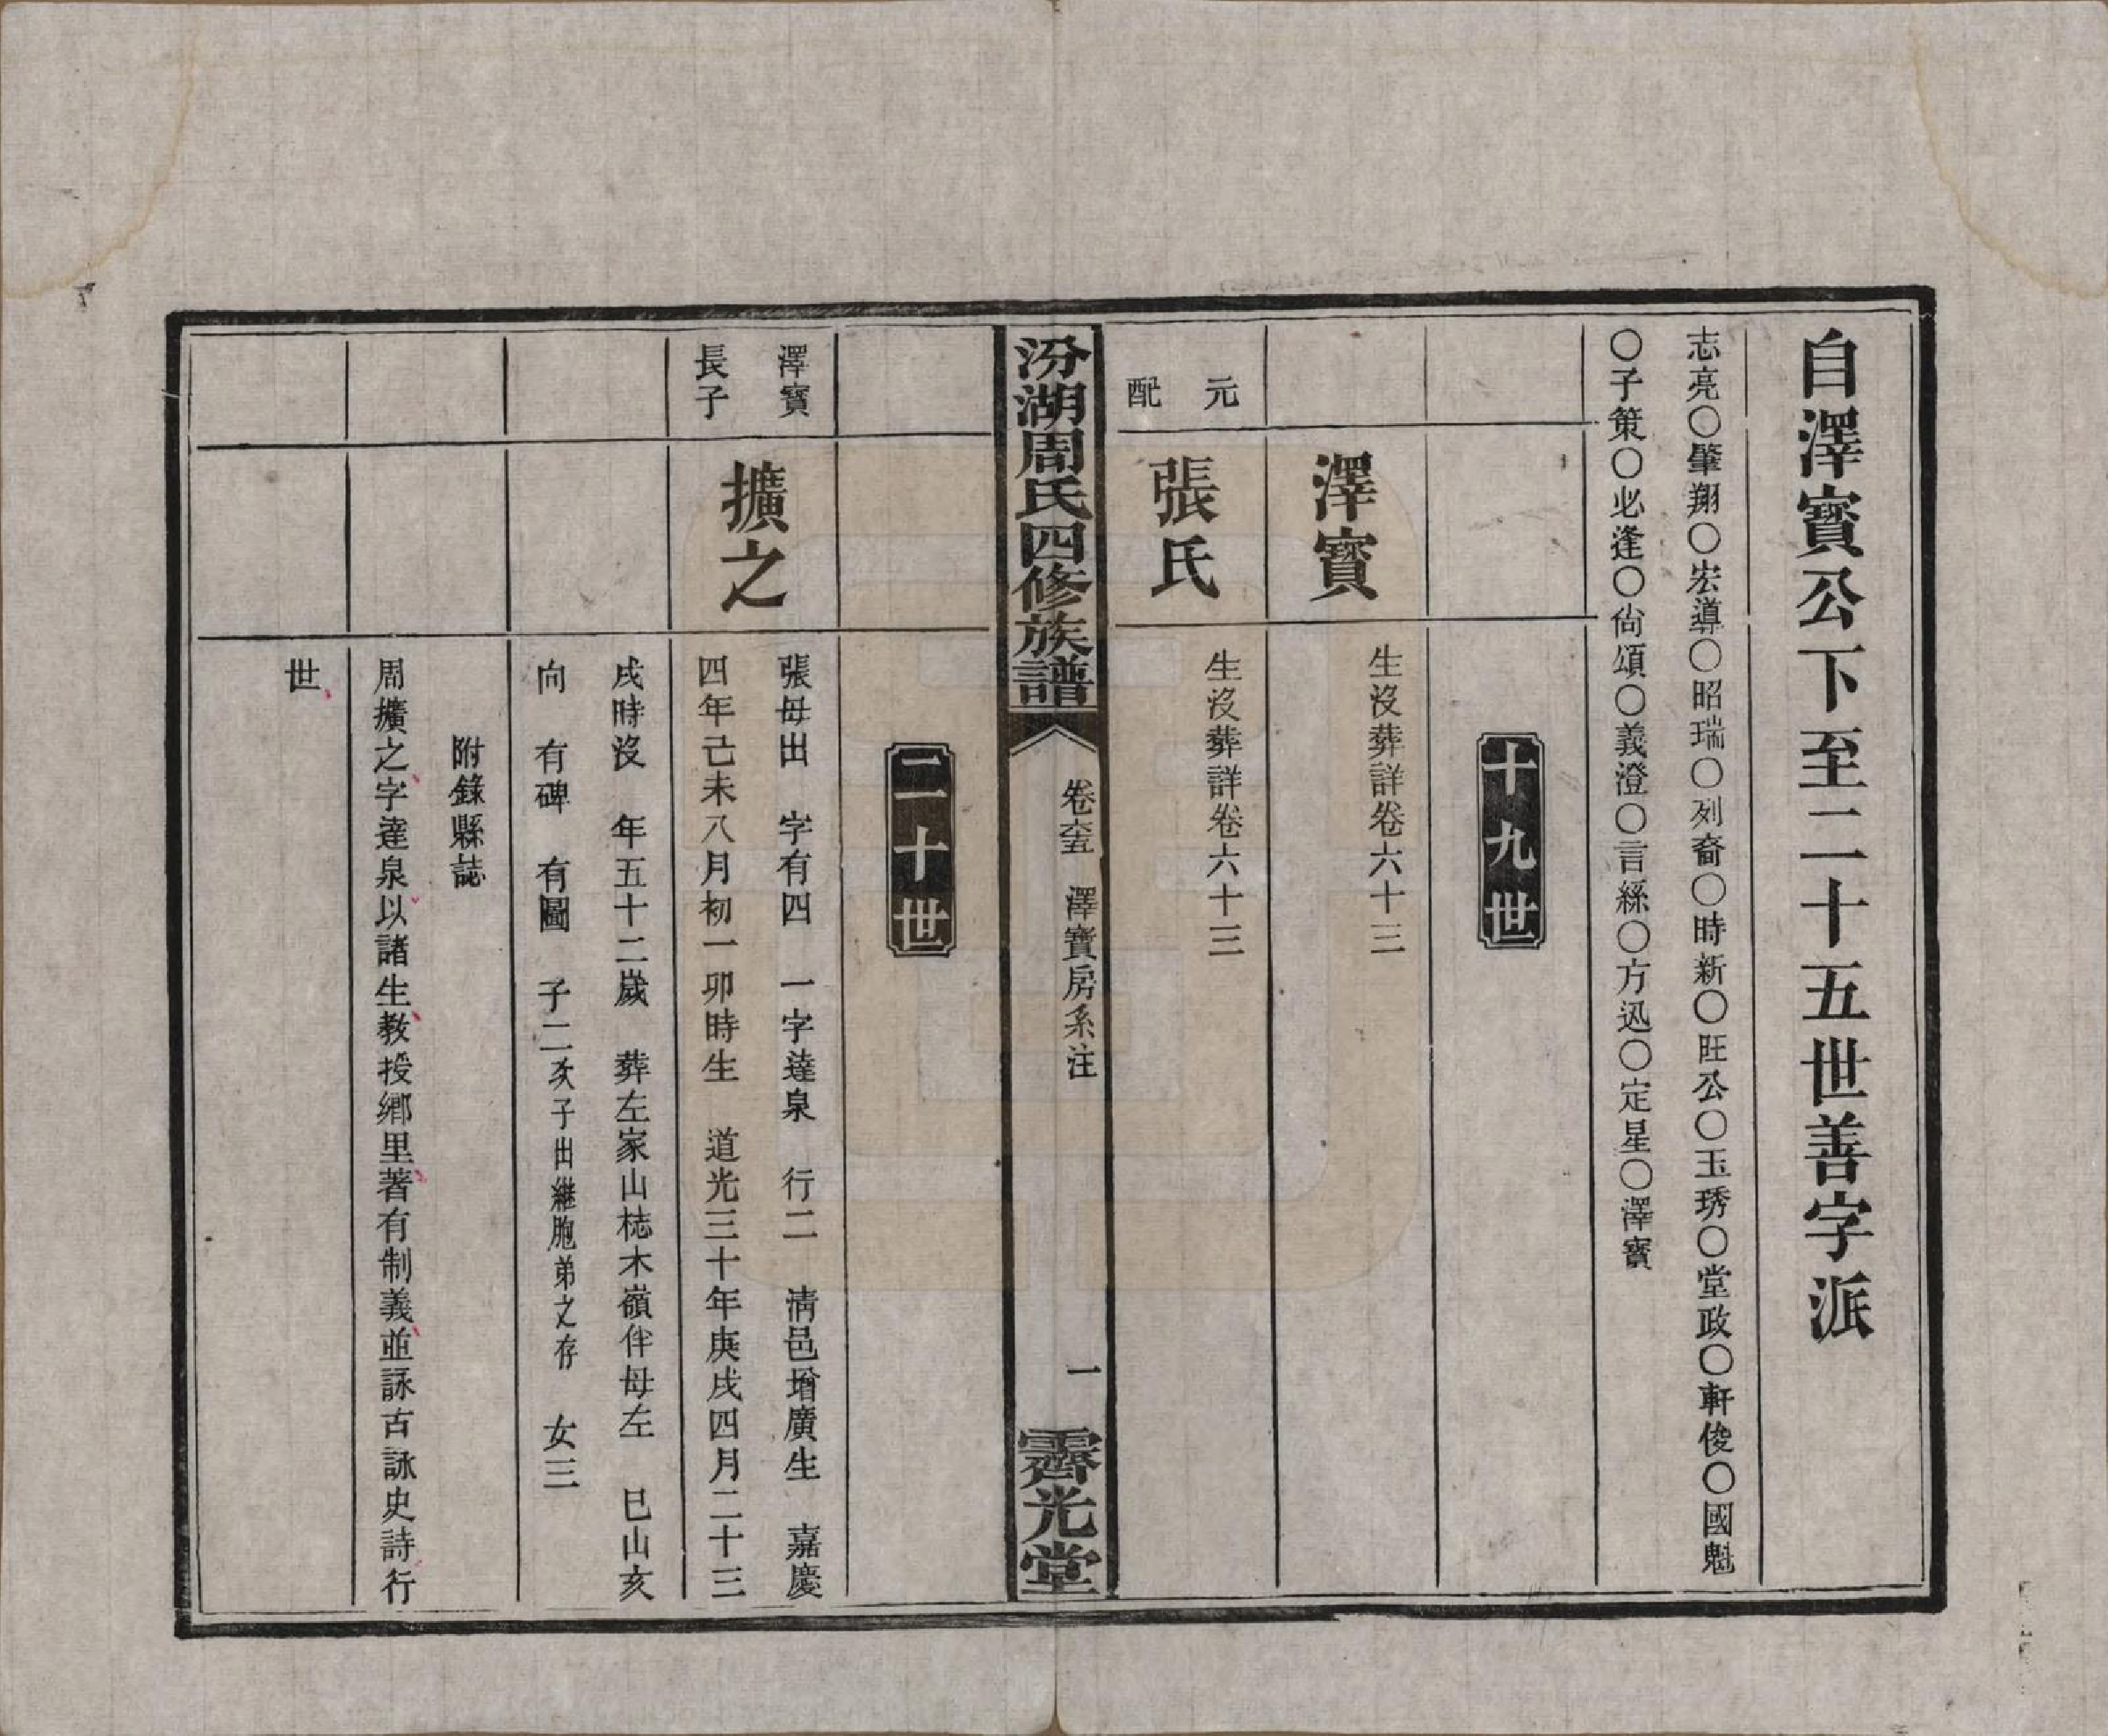 自澤寶公下至二十五世善字派
志亮〇肇翔〇宏導〇昭瑞〇列裔〇時新〇旺公〇玉琇〇堂政〇軒俊〇國魁
〇子策〇必逢〇尙頌〇義澄〇言縣〇方迅〇定星〇澤寶
十九世
澤寶
生沒葬詳卷六十三
元配
張氏
生沒葬詳卷六十三
汾湖周氏四修族譜
卷六十五 澤寶房系注
一
霽光堂
二十世
澤寶
長子
擴之
張母出 字有四 一字達泉 行二 淸邑增廣生 嘉慶
四年己未八月初一卯時生 道光三十年庚戌四月二十三
戌時沒 年五十二歲 葬左家山梽木嶺伴母左 巳山亥
向 有碑 有圖 子二次子出繼胞弟之存 女三
附錄縣誌
周擴之字達泉以諸生敎授鄕里著有制義並詠古詠史詩行
世